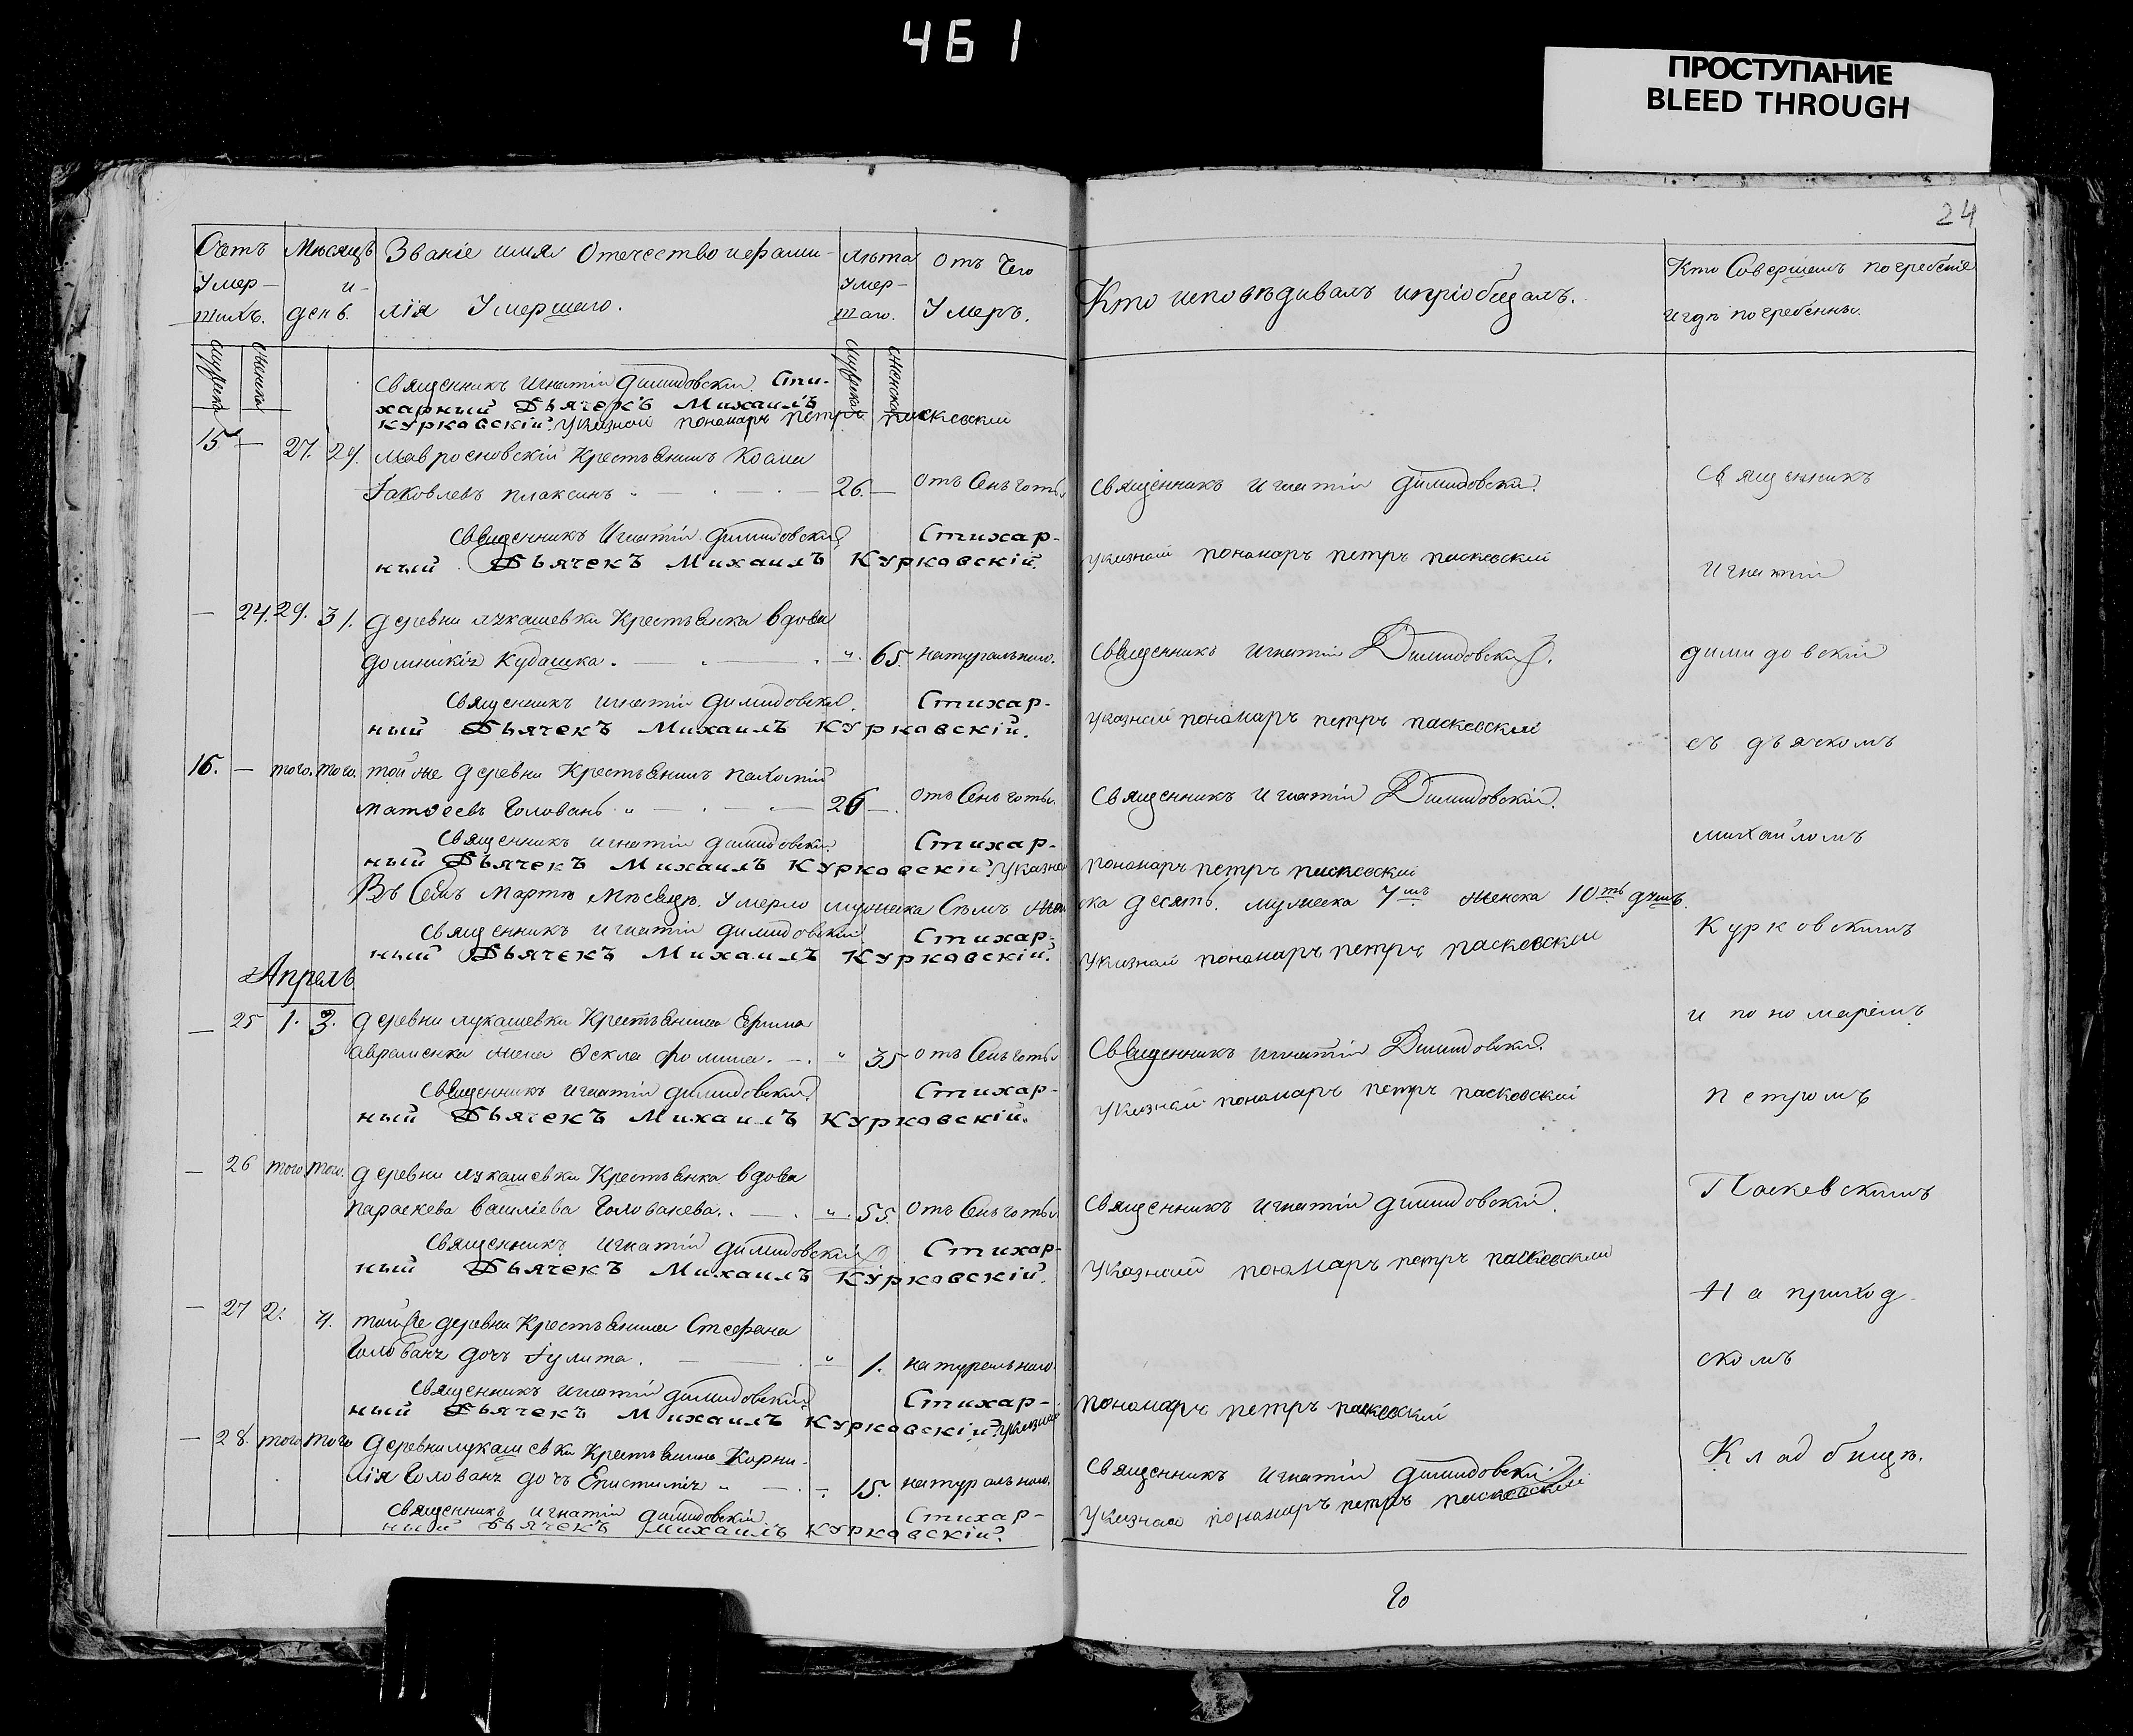 461
ПРОСТУПАНИЕ
BLEED THROUGH
24
Счетъ Умер-шихъ.
Мѣсяцъ и день.
Званіе имя Отечество и фами-
лія Умершаго.
Лѣта Умер-шаго.
Отъ Чего Умеръ.
Кто исповѣдивалъ и пріобщалъ.
Кто Совершалъ погребеніе
и гдѣ погребенны.
мужеска
женска
мужеска
женска
Священникъ Игнатій Димидовскій. Сти-
харный Дьячекъ Михаилъ
Курковскій. Указной пономарь петръ паскевский
15. — 27. 29. Крестьянинъ Козма
Іаковлевъ плаксинъ 26. — отъ Сенъ готы
Священникъ Игнатій Димидовскій.
Священникъ Игнатій Димидовскій Стихар-
ный Дьячекъ Михаилъ Курковскій.
указной пономарь петръ паскевский
— 24. 29. 31. деревни лукашевки Крестьянка вдова
домникіа Кудашка. — " 65. натурально.
Священникъ Игнатій Димидовскій.
Священникъ Игнатій Димидовскій. Стихар-
ный Дьячекъ Михаилъ Курковскій.
указной пономарь петръ паскевский
16. — того. того. той же деревни Крестьянинъ пахомій
матѳеевъ Голованъ " — 26 —. отъ Сенъ готы.
Священникъ Игнатій Димидовскій.
Священникъ Игнатій Димидовскій. Стихар-
ный Дьячекъ Михаилъ Курковскій. Указной
пономарь петръ паскевский
Въ Семъ Мартѣ Мѣсяцѣ. Умерло мужеска Семъ женска десять. мужеска 7мъ женска 10ть душъ.
Священникъ Игнатій Димидовскій Стихар-
ный Дьячекъ Михаилъ Курковскій.
Указной пономарь петръ паскевский
Апрель.
— 25 1. 3. деревни лукашевки Крестьянина Ерима
авраменка жена Ѳекла фомина. — " 35 отъ Сенъ готы
Священникъ Игнатій Димидовскій.
Священникъ Игнатій Димидовскій Стихар-
ный Дьячекъ Михаилъ Курковскій.
указной пономарь петръ паскевский
— 26 того того. деревни лукашевки Крестьянка вдова
параскева василіева Голованева. — " 55. отъ Сенъ готы.
Священникъ Игнатій Димидовскій.
Священникъ Игнатій Димидовскій Стихар-
ный Дьячекъ Михаилъ Курковскій.
Указной пономарь петръ паскевский
— 27 2. 4. той же деревни Крестьянина Стефана
Голованя дочь Іулита. — " 1. натурально.
Священникъ Игнатій Димидовскій Стихар-
ный Дьячекъ Михаилъ Курковскій. Указной
пономарь петръ паскевский
— 28. того того деревни лукашевки Крестьянина Корни-
лія Голованя дочь Епистиміа " — 15. натурально.
Священникъ Игнатій Димидовскій
Священникъ Игнатій Димидовскій Стихар-
ный Дьячекъ Михаилъ Курковскій.
Указной пономарь петръ паскевский
Священникъ
Игнатій
димидовскій
съ дьячкомъ
михаиломъ
Курковскимъ
и пономаремъ
петромъ
Паскевскимъ
На приход
скомъ
Кладбищѣ.